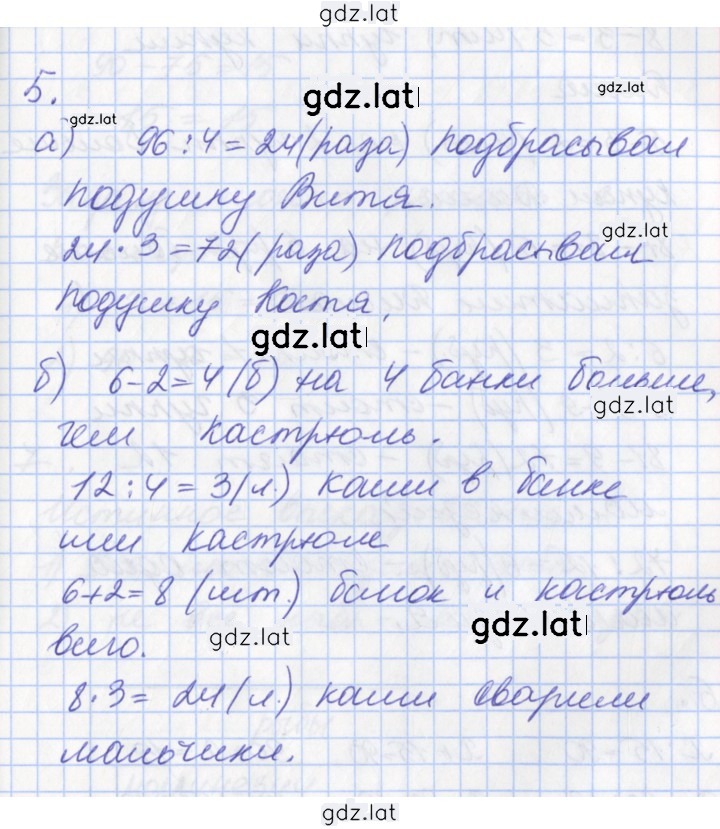 gdz.lat
5.
gdz.lat
gdz.lat
gdz.lat
а) 96 : 4 = 24 (раза) подбрасывал
подушку Витя.
gdz.lat
24 · 3 = 72 (раза) подбрасывал
подушку Костя,
gdz.lat
б) 6 - 2 = 4 (б) на 4 банки больше,
gdz.lat
чем кастрюль.
12 : 4 = 3 (л.) каши в банке
или кастрюле
6 + 2 = 8 (шт.) банок и кастрюль
gdz.lat
всего.
gdz.lat
8 · 3 = 24 (л.) каши сварили
мальчики.
gdz.lat